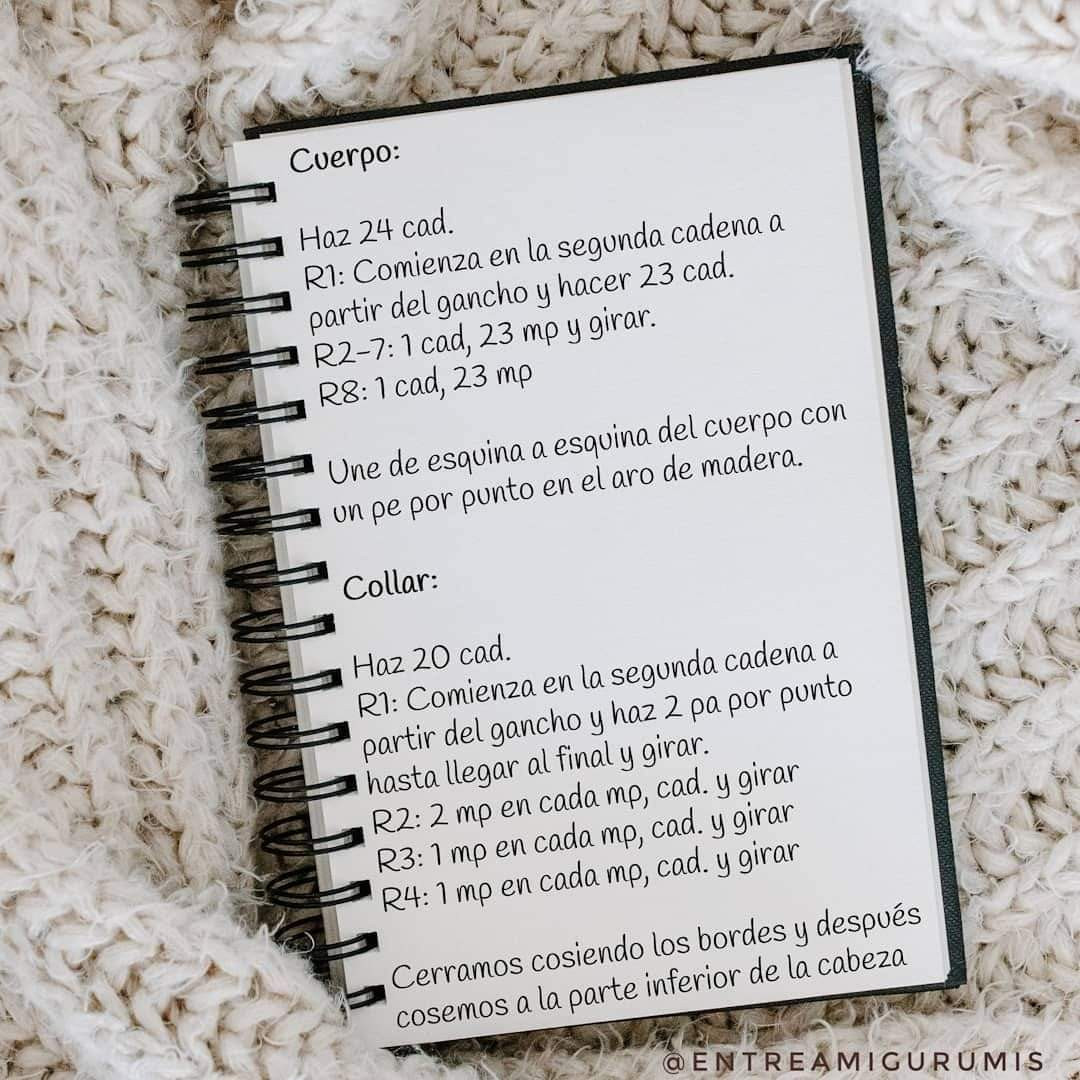 Cuerpo:
Haz 24 cad.
R1: Comienza en la segunda cadena a
partir del gancho y hacer 23 cad.
R2-7: 1 cad, 23 mp y girar.
R8: 1 cad, 23 mp
Une de esquina a esquina del cuerpo con
un pe por punto en el aro de madera.
Collar:
Haz 20 cad.
R1: Comienza en la segunda cadena a
partir del gancho y haz 2 pa por punto
hasta llegar al final y girar.
R2: 2 mp en cada mp, cad. y girar
R3: 1 mp en cada mp, cad. y girar
R4: 1 mp en cada mp, cad. y girar
Cerramos cosiendo los bordes y después
cosemos a la parte inferior de la cabeza
@ENTREAMIGURUMIS